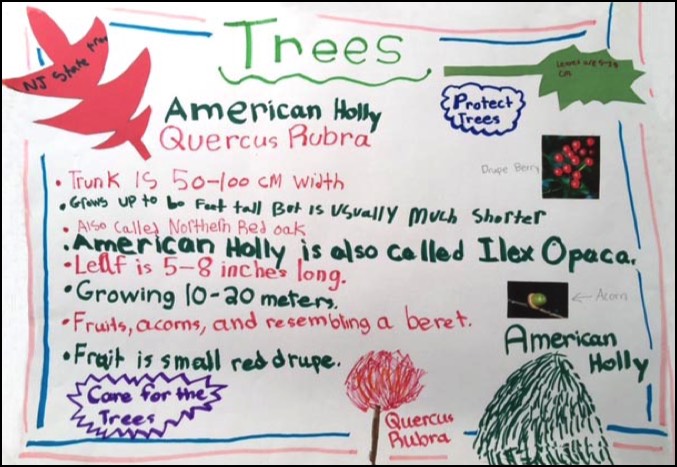 Trees
NJ State tree
Leaves are 5-30
cm
American Holly
Quercus Rubra
Protect
Trees
Drupe Berry
• Trunk is 50-100 cm width
• Grows up to 60 Feet tall But is Usually Much shorter
• Also called Northern Red oak
• American Holly is also called Ilex Opaca.
• Leaf is 5-8 inches long.
• Growing 10-20 meters.
← Acorn
• Fruits, acorns, and resembling a beret.
• Fruit is small red drupe.
American
Holly
Care for the
Trees
Quercus
Rubra